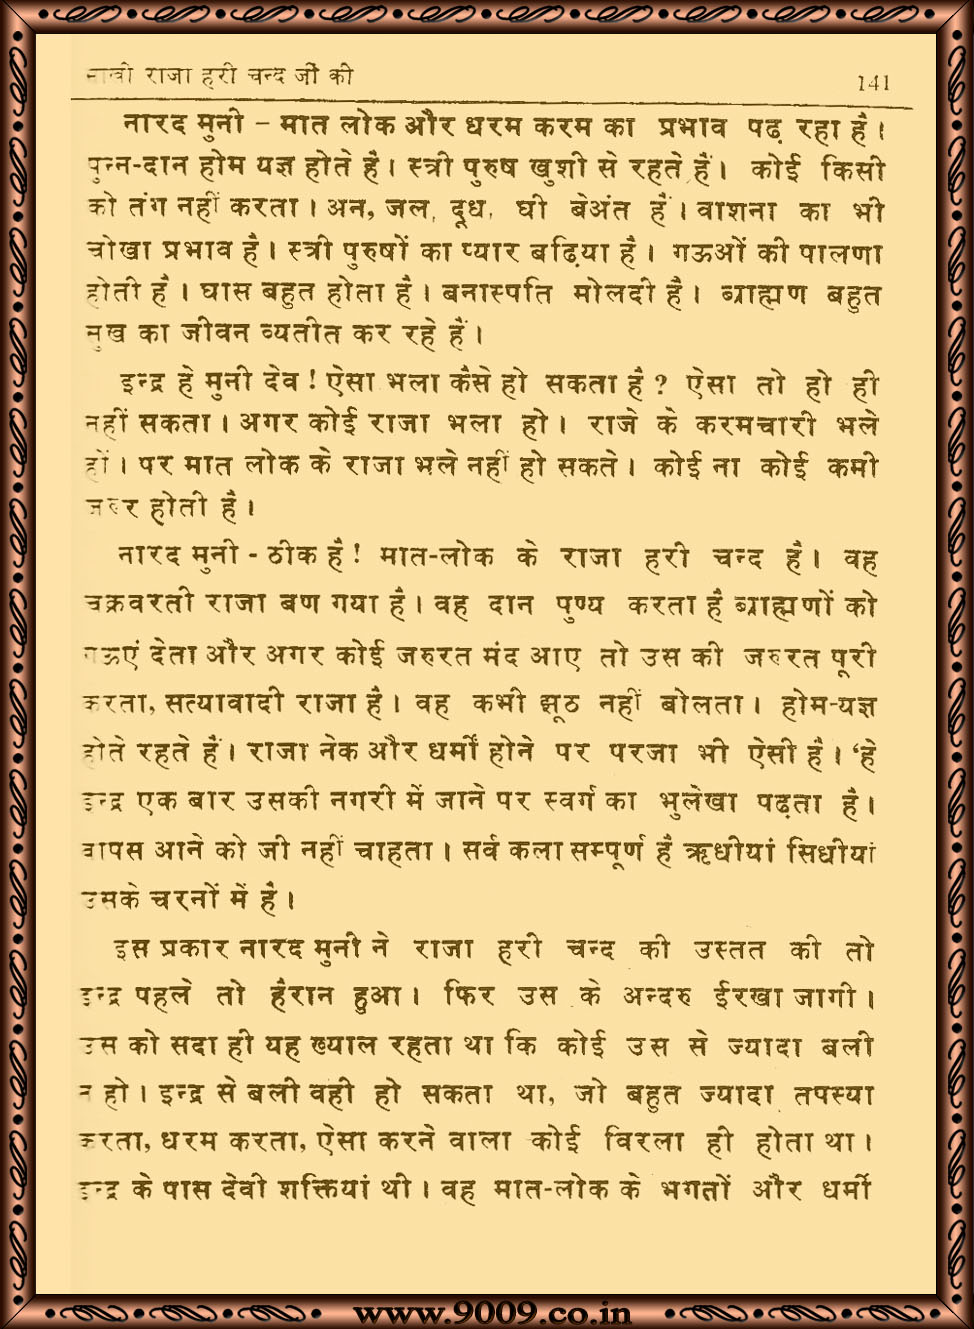 साखी राजा हरी चन्द जी की 141
नारद मुनी – मात लोक और धरम करम का प्रभाव पढ़ रहा है।
पुन्न-दान होम यज्ञ होते हैं। स्त्री पुरुष खुशी से रहते हैं। कोई किसी
को तंग नहीं करता। अन, जल, दूध, घी बेअंत हैं। वाशना का भी
चोखा प्रभाव है। स्त्री पुरुषों का प्यार बढ़िया है। गऊओं की पालणा
होती है। घास बहुत होता है। बनास्पति मोलदी है। ब्राह्मण बहुत
सुख का जीवन व्यतीत कर रहे हैं।
इन्द्र हे मुनी देव! ऐसा भला कैसे हो सकता है? ऐसा तो हो ही
नहीं सकता। अगर कोई राजा भला हो। राजे के करमचारी भले
हों। पर मात लोक के राजा भले नहीं हो सकते। कोई ना कोई कमी
जरुर होती है।
नारद मुनी - ठीक है! मात-लोक के राजा हरी चन्द है। वह
चक्रवरती राजा बण गया है। वह दान पुण्य करता है ब्राह्मणों को
गऊएं देता और अगर कोई जरुरत मंद आए तो उस की जरुरत पूरी
करता, सत्यावादी राजा है। वह कभी झूठ नहीं बोलता। होम-यज्ञ
होते रहते हैं। राजा नेक और धर्मी होने पर परजा भी ऐसी है। ‘हे
इन्द्र एक बार उसकी नगरी में जाने पर स्वर्ग का भुलेखा पढ़ता है।
वापस आने को जी नहीं चाहता। सर्व कला सम्पूर्ण है ऋधीयां सिधीयां
उसके चरनों में है।
इस प्रकार नारद मुनी ने राजा हरी चन्द की उस्तत की तो
इन्द्र पहले तो हैरान हुआ। फिर उस के अन्दरु ईरखा जागी।
उस को सदा ही यह ख्याल रहता था कि कोई उस से ज्यादा बली
न हो। इन्द्र से बली वही हो सकता था, जो बहुत ज्यादा तपस्या
करता, धरम करता, ऐसा करने वाला कोई विरला ही होता था।
इन्द्र के पास देवी शक्तियां थी। वह मात-लोक के भगतों और धर्मी
www.9009.co.in